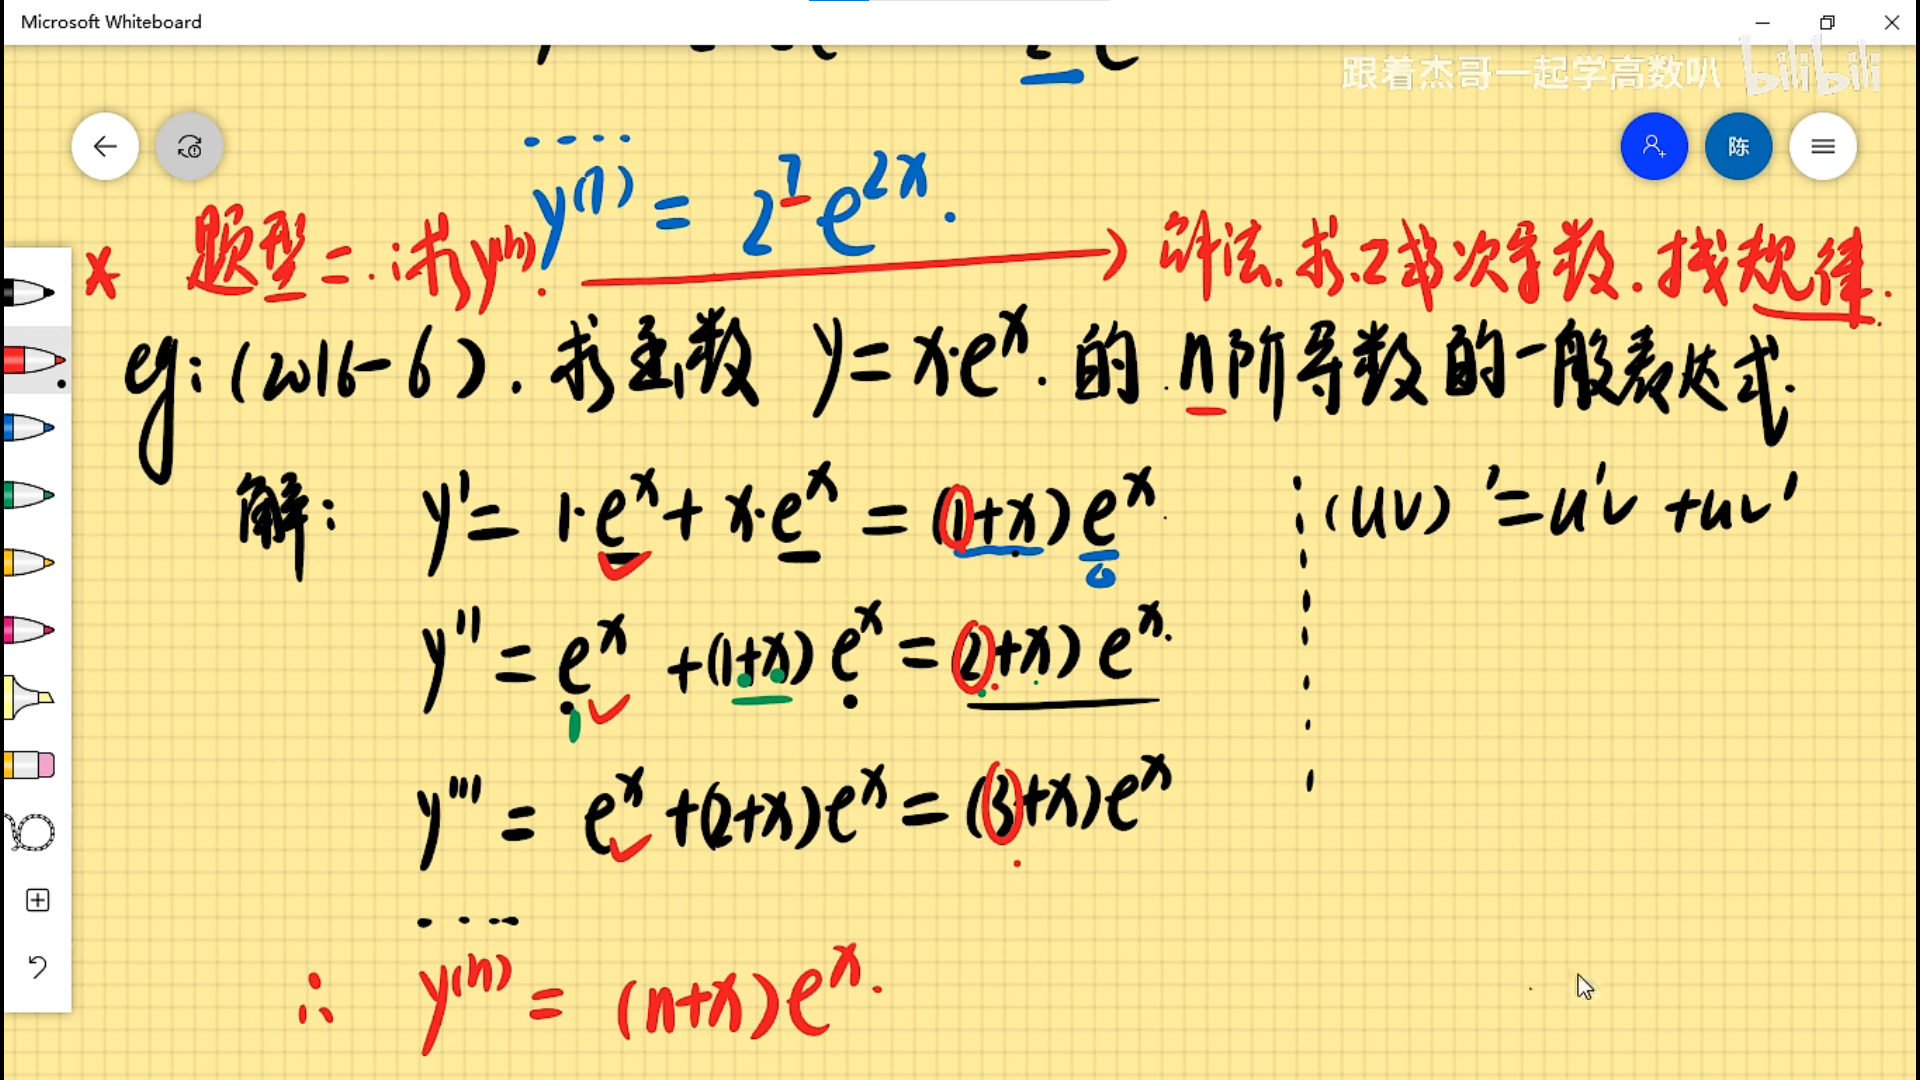 Microsoft Whiteboard
跟着杰哥一起学高数叭 bilibili
陈
....
y⁽⁷⁾ = 2⁷e²ˣ.
× 题型二:求y⁽ⁿ⁾. → 解法.求.2或3次导数.找规律.
eg:(2016-6).求函数 y=x·eˣ.的n阶导数的一般表达式.
解: y'=1·eˣ+x·eˣ=(1+x)eˣ. (uv)'=u'v+uv'
y''=eˣ+(1+x)eˣ=(2+x)eˣ.
y'''=eˣ+(2+x)eˣ=(3+x)eˣ
....
∴ y⁽ⁿ⁾=(n+x)eˣ.